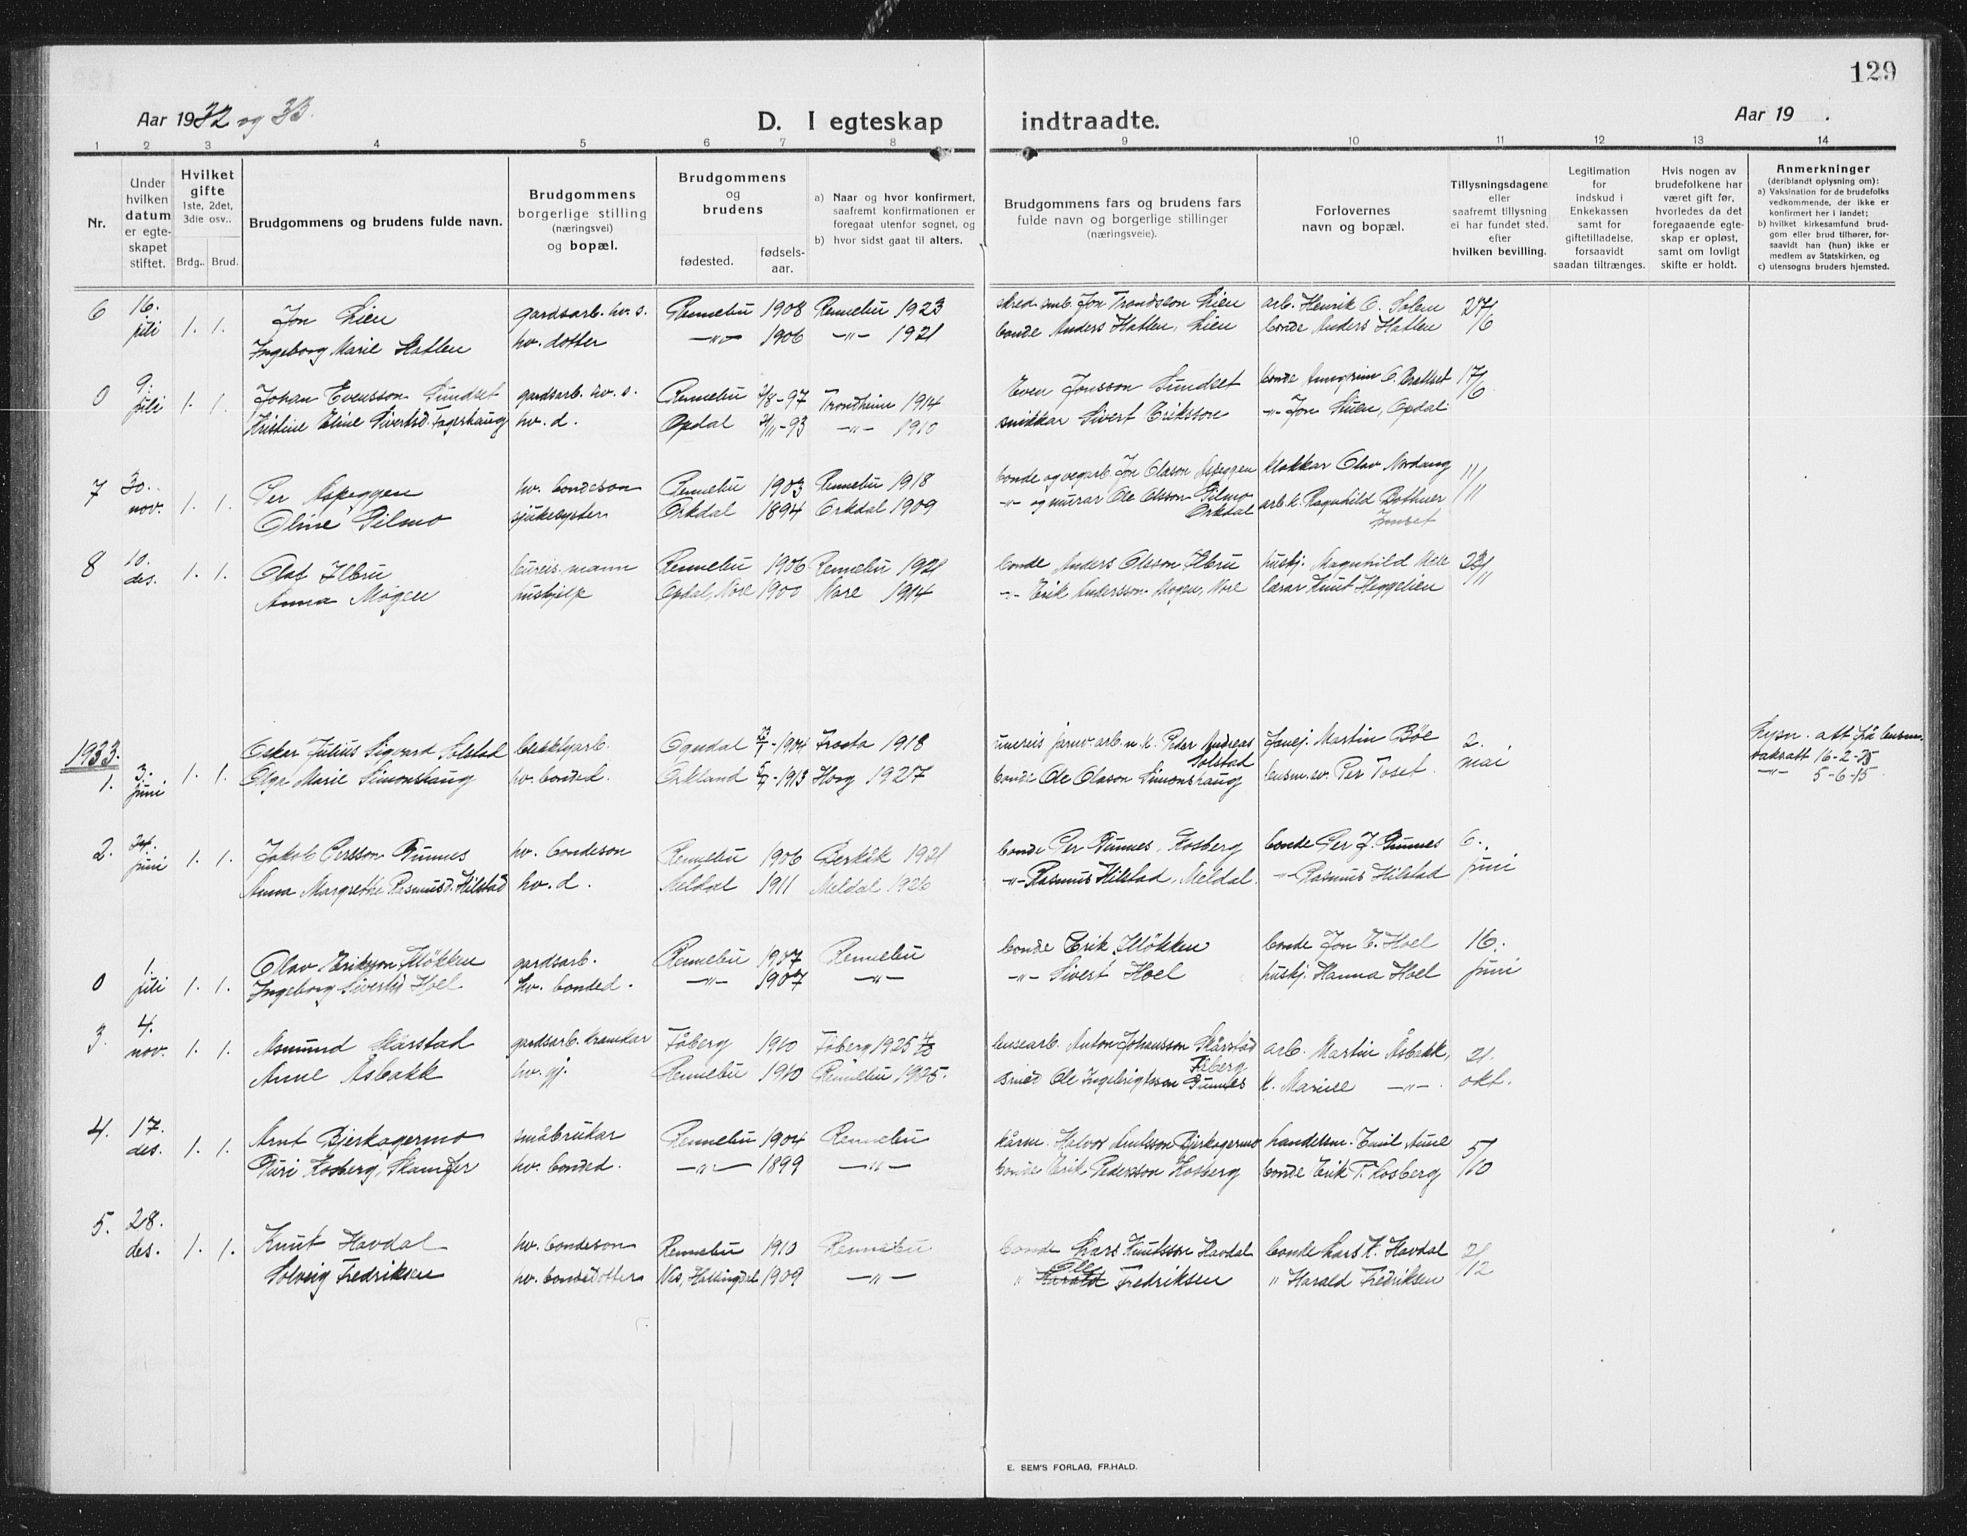 129
Aar 1932 og 33.
D. I egteskap indtraadte.
Aar 19 .
1 2 3 4 5 6 7 8 9 10 11 12 13 14
Nr.
Under hvilken datum er egteskapet stiftet.
Hvilket gifte 1ste, 2det, 3die osv..
Brdg.. Brud.
Brudgommens og brudens fulde navn.
Brudgommens borgerlige stilling (næringsvei) og bopæl.
Brudgommens og brudens
fødested.
fødselsaar.
a) Naar og hvor konfirmert, saafremt konfirmationen er foregaat utenfor sognet, og
b) hvor sidst gaat til alters.
Brudgommens fars og brudens fars fulde navn og borgerlige stillinger (næringsveie).
Forlovernes navn og bopæl.
Tillysningsdagene eller saafremt tillysning ei har fundet sted. efter hvilken bevilling.
Legitimation for indskud i Enkekassen samt for giftetilladelse, forsaavidt saadan tiltrænges.
Hvis nogen av brudefolkene har været gift før, hvorledes da det foregaaende egteskap er opløst, samt om lovligt skifte er holdt.
Anmerkninger (deriblandt oplysning om):
a) Vaksination for de brudefolks vedkommende, der ikke er konfirmert her i landet;
b) hvilket kirkesamfund brudgom eller brud tilhører, forsaavidt han (hun) ikke er medlem av Statskirken, og
c) utensogns bruders hjemsted.
6 16. juli 1. 1. Jon Lien gardsarb. hv. s. Rennebu 1908 Rennebu 1923 skred. emb. Jon Trondsson Lien arb. Henrik O. Solem 27/6
Ingeborg Marie Hatlen hv. dotter -"- 1906 -"- 1921 bonde Anders Hatlen, Lien bonde Anders Hatlen
0 9. juli 1. 1. Johan Evensson Sundset gardsarb. hv. s. Rennebu /8-97 Trondheim 1914 Even Jonsson Sundset bonde Arngrim O. Brattset 17/6
Kristine Eline Sivertsd. Fagerhaug hv. d. Opdal /11-93 -"- 1910 snikkar Sivert Eriksson -"- Jon Stuen, Opdal
7 30. nov. 1. 1. Per Aspeggen hv. bondeson Rennebu 1903 Rennebu 1918 bonde og vegarb. Jon Olason Aspeggen klokkar Olav Nordang 11/11
Oline Gilmo sjukesyster Orkdal 1894 Orkdal 1909 -"- og murar Ole Olsson Gilmo Orkdal arb. k. Ragnhild Bothner
8 10. des. 1. 1. Olaf Ilbru bureis. mann Rennebu 1906 Rennebu 1921 bonde Anders Olsson Ilbru huskj. Magnhild 23/11
Anna Mogen hushjelp Opdal, Nore 1900 Nore 1914 -"- Erik Andersson Mogen, Nore lærar Knut Heggelien
1933.
1. 3. juni 1. 1. Oskar Julius Sigvard Solstad bekklyarb. Ogndal -1904 Frosta 1918 arb. Peder Andreas Solstad Martin Böe 2. mai
Olga Marie Simonshaug hv. bonded. Orkland -1913 Horg 1927 bonde Ole Olason Simonshaug lensm. sv. Per Toset
Lysn. att frå lensm.
vaksatt 16-2-
-"- 5-6-15
2. 24. juni 1. 1. Jakob Persson Gunnes hv. bondeson Rennebu 1906 Berkåk 1921 bonde Per Gunnes, Kosberg bonde Per J. Gunnes 6. juni
Anna Margrethe Rasmusd. Hilstad hv. d. Meldal 1911 Meldal 1926 -"- Rasmus Hilstad, Meldal. -"- Rasmus Hilstad
0 1. juli 1. 1. Olav Eriksson Kløkken gardsarb. Rennebu 1907 Rennebu bonde Erik Kløkken bonde Jon E. Hoel 16. juni
Ingeborg Sivertsd Hoel hv. bonded. -"- 1907 -"- -"- Sivert Hoel huskj. Hanna Hoel
3. 4. nov. 1. 1. Asmund Skårstad gardsarb. Fåberg 1910 Fåberg 1925 lensearb. Anton Johansson Skårstad Fåberg arb. Martin Åsbakk, 21. okt.
Anne Åsbakk hv. gj. Rennebu 1910 Rennebu 1925. smed Ole Ingebrigtsson Gunnes k. Marie -"-
4. 17. des. 1. 1. Arnt Bjerkagermo småbrukar Rennebu 1904 Rennebu Halvor Arntsson Bjerkagermo handelsm. Emil Aune 5/10
Guri Kosberg, Skamfer hv. bonded. -"- 1899 -"- bonde Erik Pedersson Kosberg bonde Erik P. Kosberg
5. 28. des. 1. 1. Knut Havdal hv. bondeson Rennebu 1910 Rennebu bonde Lars Knutsson Havdal bonde Lars K. Havdal 2/12
Solveig Fredriksen hv. bondedotter Nes, Hallingdal 1909 -"- " Olle Harald Fredriksen " Harald Fredriksen
E. SEM'S FORLAG, FR.HALD.